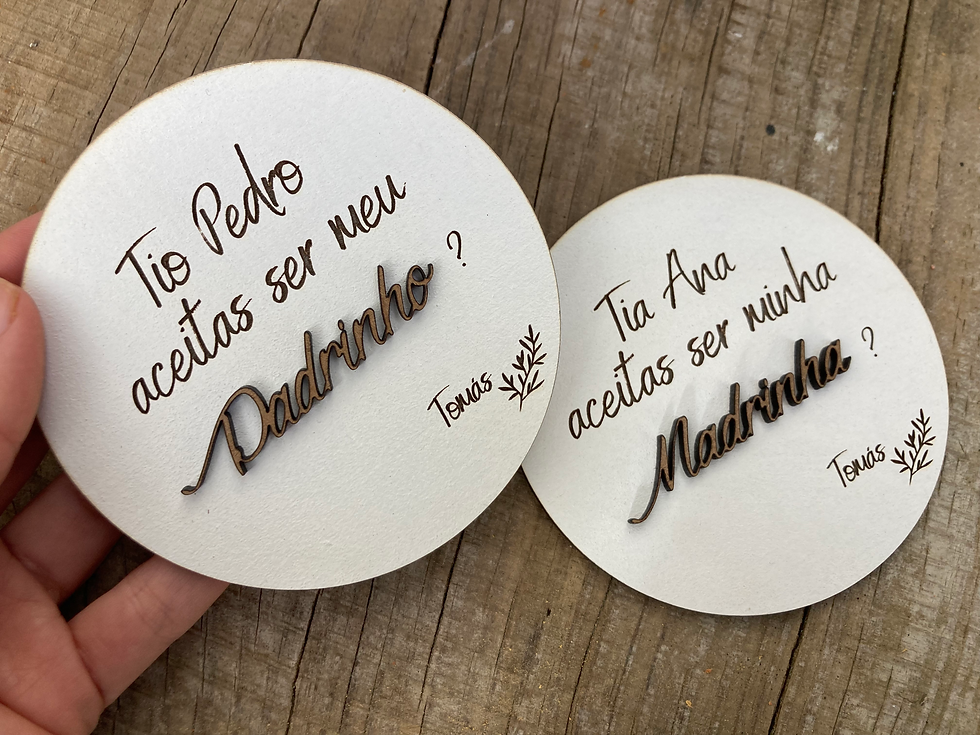 Tio Pedro
aceitas ser meu
Padrinho ?
Tomás
Tia Ana
aceitas ser minha
Madrinha ?
Tomás